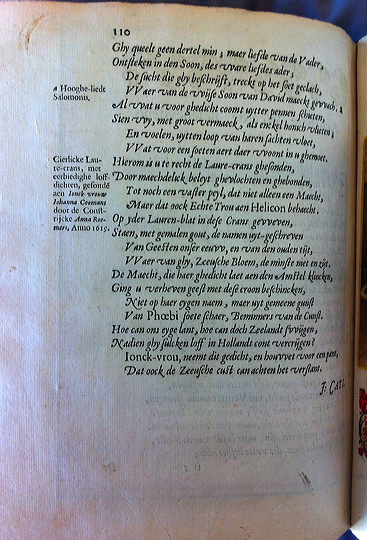 110
Ghy queelt geen dertel min, maer liefde van de Vader,
Ontsteken in den Soon, des ware liefdes ader;
De sucht die ghy beschrijft, treckt op het soet geclach,
a Hooghe-liedt
Salomonis.
VVaer van de wijse Soon van David maeckt gewach. a
Al wat u voor ghedicht coomt uyter pennen schieten,
Sien wy, met groot vermaeck, als enckel honich vlieten;
En voelen, uytten loop van haren sachten vloet,
VVat voor een soeten aert daer woont in u ghemoet.
Cierlicke Lau-
re-crans, met
eerbiedighe loff-
dichten, gesonde
aen Ionck-vrouw
Iohanna Coomans
door de Const-
rijcke Anna Roe-
mers, Anno 1619.
Hierom is u te recht de Laure-crans ghesonden,
Door maechdelick beleyt ghevlochten en ghebonden,
Tot noch een vaster peyl, dat niet alleen een Maecht,
Maer dat oock Echte Trou aen Helicon behaecht.
Op yder Lauren-blat in dese Crans geweven,
Staen, met gemalen gout, de namen uyt-geschreven
Van Geesten onser eeuw, en van den ouden tijt,
VVaer van ghy, Zeeusche Bloem, de minste niet en zijt.
De Maecht, die haer ghedicht laet aen den Amstel klincken,
Ging u verheven geest met dese croon beschincken,
Niet op haer eygen naem, maer uyt gemeene gunst
Van Phœbi soete schaer, Bemmers van de Cunst.
Hoe can ons eyge lant, hoe can doch Zeelandt swijgen,
Nadien ghy sulcken loff in Hollandt cont vercrijgen?
Ionck-vrou, neemt dit gedicht, en houwet voor een pant,
Dat oock de Zeeusche cust can achten het verstant.
J. CATS.